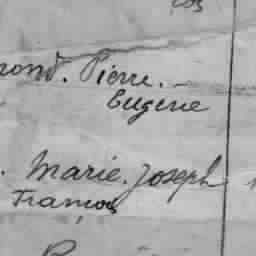 rond. Pierre.
Eugène
Marie. Joseph
François